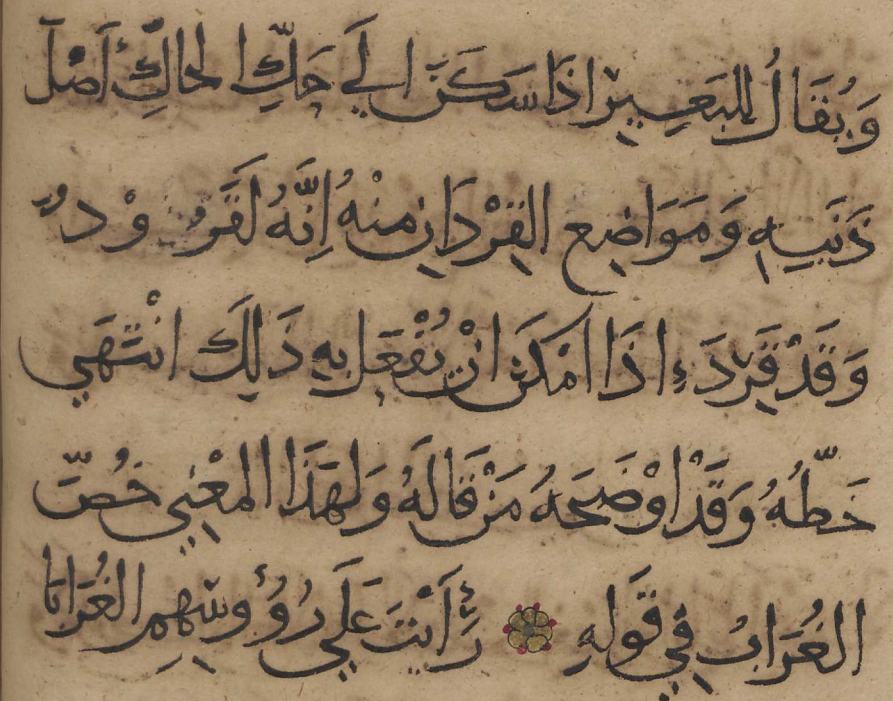 وَيُقَالُ لِلبَعِيرِ اذَا سَكَنَ الَي حَكِّ الحَاكِّ أَصْلَ
ذَنَبِهِ وَمَوَاضِعِ القِرْدَانِ مِنْهُ اِنَّهُ لَقَرُ وْدٌ
وَقَدْ قَرِدَ اذَا امْكَنَ انْ يُفْعَلَ بِهِ ذَلِكَ انْتَهَي
خَطُّهُ وَقَدْ اوْضَحَهُ مَنْ قَالَهُ وَلِهَذَا المعْنِي خُصَّ
الغُرَابُ فِي قَولِهِ رَأَيْتَ عَلَي رُؤُوسِهِمِ الغُرَابَا